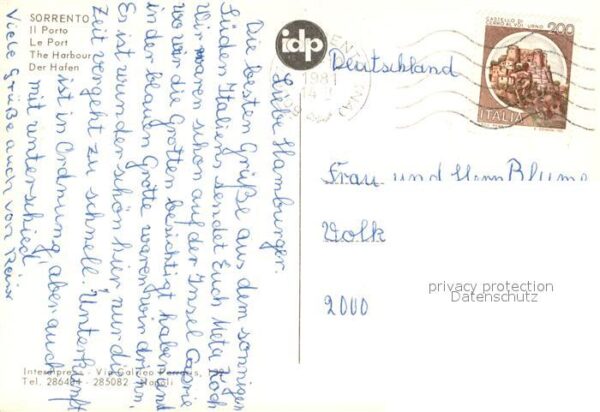 SORRENTO
Il Porto
Le Port
The Harbour
Der Hafen
idp
1981
CASTELLO DI
CERRO AL VOLTURNO
200
ITALIA
Deutschland
Liebe Hamburger.
Die besten Grüße aus dem sonnigen
Süden Italiens sendet Euch Meta Koch
Wir waren schon auf der Insel Caprie
wo wir die Grotten besichtigt haben und
in der blauen Grotte waren wir drin.
Es ist wunderschön hier nur die
Zeit vergeht zu schnell. Unterkunft
ist in Ordnung, aber auch
mit unterschied
Viele Grüße auch von
Frau und Herrn Blume
Volk
2000
privacy protection
Datenschutz
Interdipress - Via Galileo Ferraris,
Tel. 286484 - 285082 - Napoli